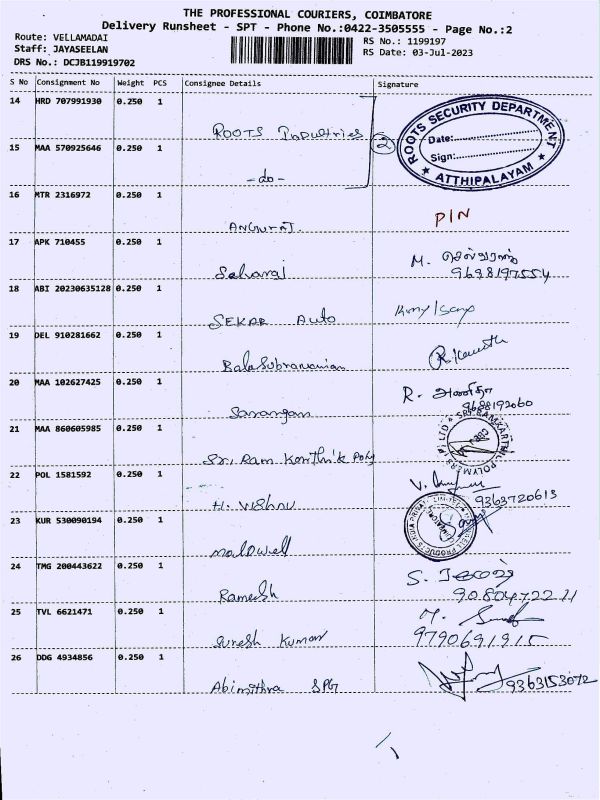 THE PROFESSIONAL COURIERS, COIMBATORE
Delivery Runsheet - SPT - Phone No.:0422-3505555 - Page No.:2
Route: VELLAMADAI RS No.: 1199197
Staff: JAYASEELAN RS Date: 03-Jul-2023
DRS No.: DCJB119919702
S No Consignment No Weight PCS Consignee Details Signature
14 HRD 707991930 0.250 1
ROOTS Industries 2
ROOTS SECURITY DEPARTMENT
Date:
Sign:
ATTHIPALAYAM
15 MAA 570925646 0.250 1
- do -
16 MTR 2316972 0.250 1
PIN
17 APK 710455 0.250 1
M. செல்வராஜ்
9688197554
18 ABI 20230635128 0.250 1
SEKAR Auto
19 DEL 910281662 0.250 1
BalaSubramanian
20 MAA 102627425 0.250 1
R. அனிதா
Sarangan 9688192060
21 MAA 860605985 0.250 1
SRI RAMKARTHIK POLYMERS (P) LTD
CBE
Sri Ram Karthik Poly
22 POL 1581592 0.250 1
H. Vishnu 9363720613
23 KUR 530090194 0.250 1
24 TMG 200443622 0.250 1
S.
Ramesh
25 TVL 6621471 0.250 1
M.
Suresh Kumar 9790691915
26 DDG 4934856 0.250 1
9363153072